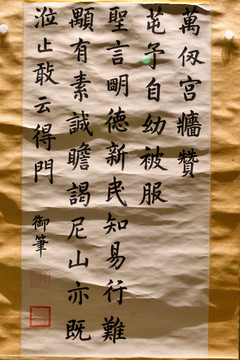 萬仞宮牆贊
芼予自幼被服
聖言眀德新民知易行難
顒有素誠瞻謁尼山亦既
涖止敢云得門
御筆